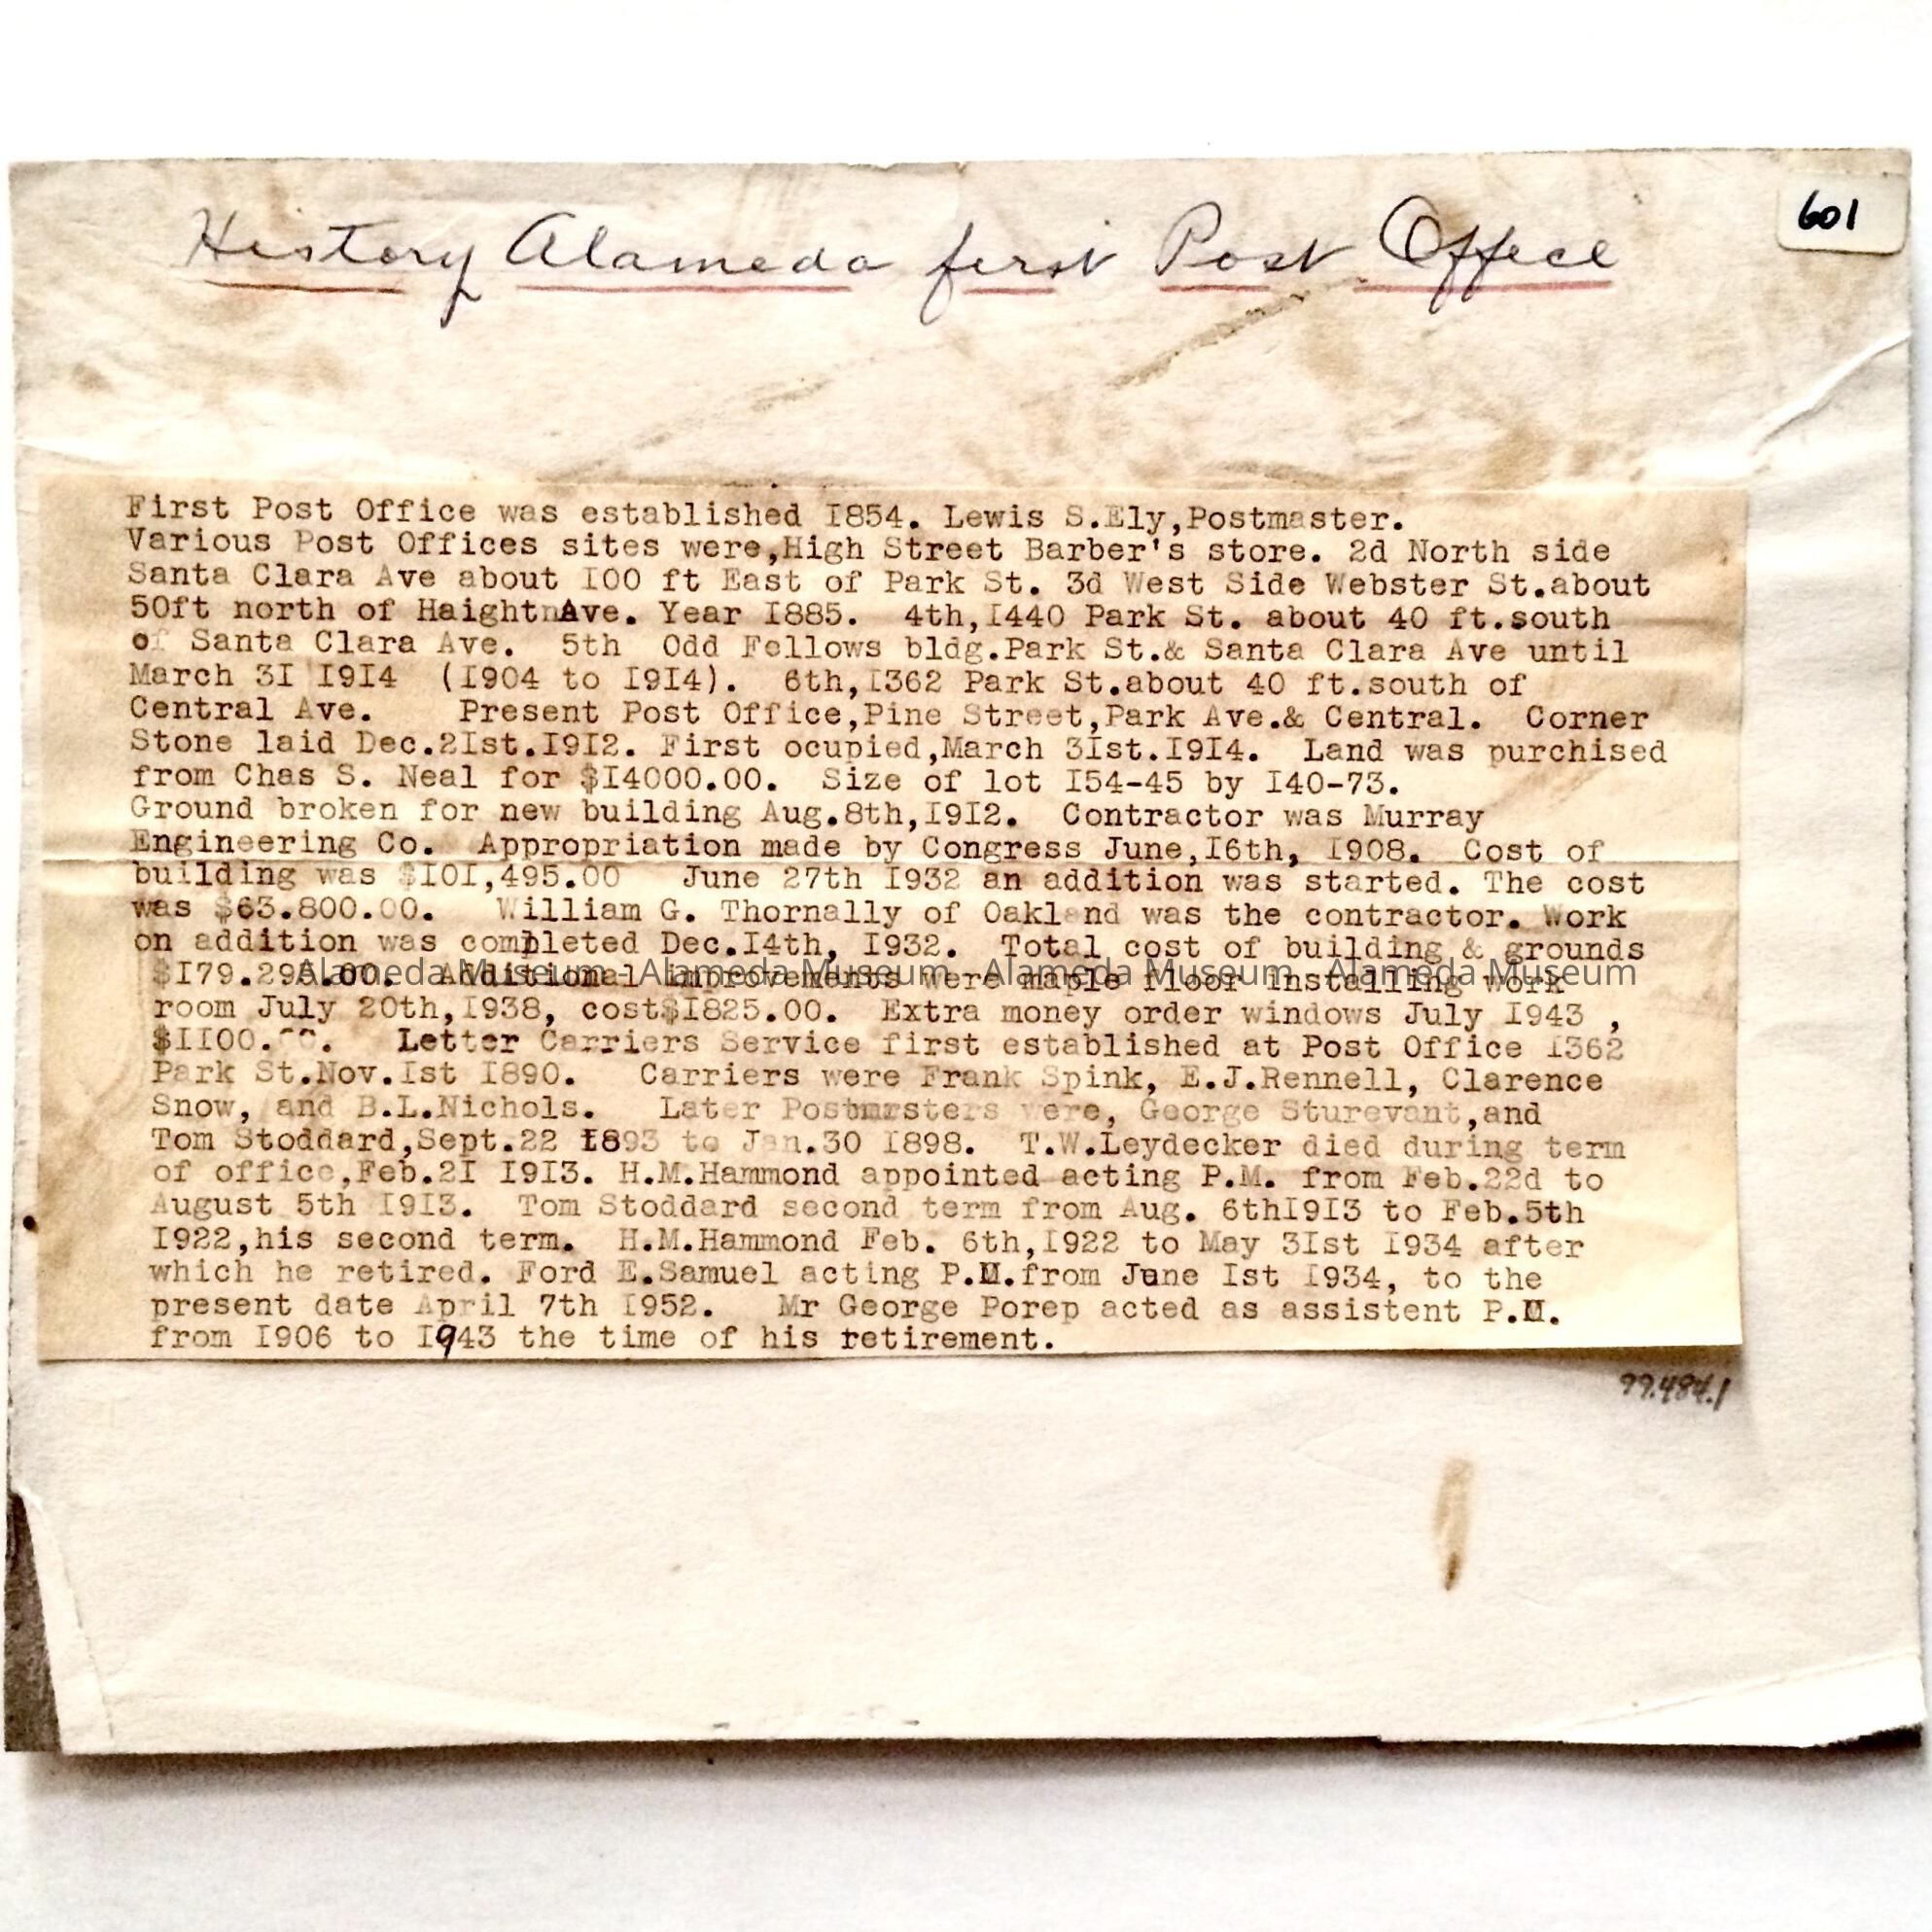 History Alameda first Post Office
601
First Post Office was established I854. Lewis S.Ely,Postmaster.
Various Post Offices sites were,High Street Barber's store. 2d North side
Santa Clara Ave about I00 ft East of Park St. 3d West Side Webster St.about
50ft north of HaightnAve. Year I885. 4th,I440 Park St. about 40 ft.south
of Santa Clara Ave. 5th Odd Fellows bldg.Park St.& Santa Clara Ave until
March 3I I9I4 (I904 to I9I4). 6th,I362 Park St.about 40 ft.south of
Central Ave. Present Post Office,Pine Street,Park Ave.& Central. Corner
Stone laid Dec.2Ist.I9I2. First ocupied,March 3Ist.I9I4. Land was purchised
from Chas S. Neal for $I4000.00. Size of lot I54-45 by I40-73.
Ground broken for new building Aug.8th,I9I2. Contractor was Murray
Engineering Co. Appropriation made by Congress June,I6th, I908. Cost of
building was $I0I,495.00 June 27th I932 an addition was started. The cost
was $63.800.00. William G. Thornally of Oakland was the contractor. Work
on addition was completed Dec.I4th, I932. Total cost of building & grounds
$I79.295.00. Additional improvements were maple floor installing work
Alameda Museum - Alameda Museum - Alameda Museum - Alameda Museum
room July 20th,I938, cost$I825.00. Extra money order windows July I943 ,
$II00. Letter Carriers Service first established at Post Office I362
Park St.Nov.Ist I890. Carriers were Frank Spink, E.J.Rennell, Clarence
Snow, and B.L.Nichols. Later Postmrsters were, George Sturevant,and
Tom Stoddard,Sept.22 I893 to Jan.30 I898. T.W.Leydecker died during term
of office,Feb.2I I9I3. H.M.Hammond appointed acting P.M. from Feb.22d to
August 5th I9I3. Tom Stoddard second term from Aug. 6thI9I3 to Feb.5th
I922,his second term. H.M.Hammond Feb. 6th,I922 to May 3Ist I934 after
which he retired. Ford E.Samuel acting P.M.from June Ist I934, to the
present date April 7th I952. Mr George Porep acted as assistent P.M.
from I906 to I943 the time of his retirement.
99.484.1